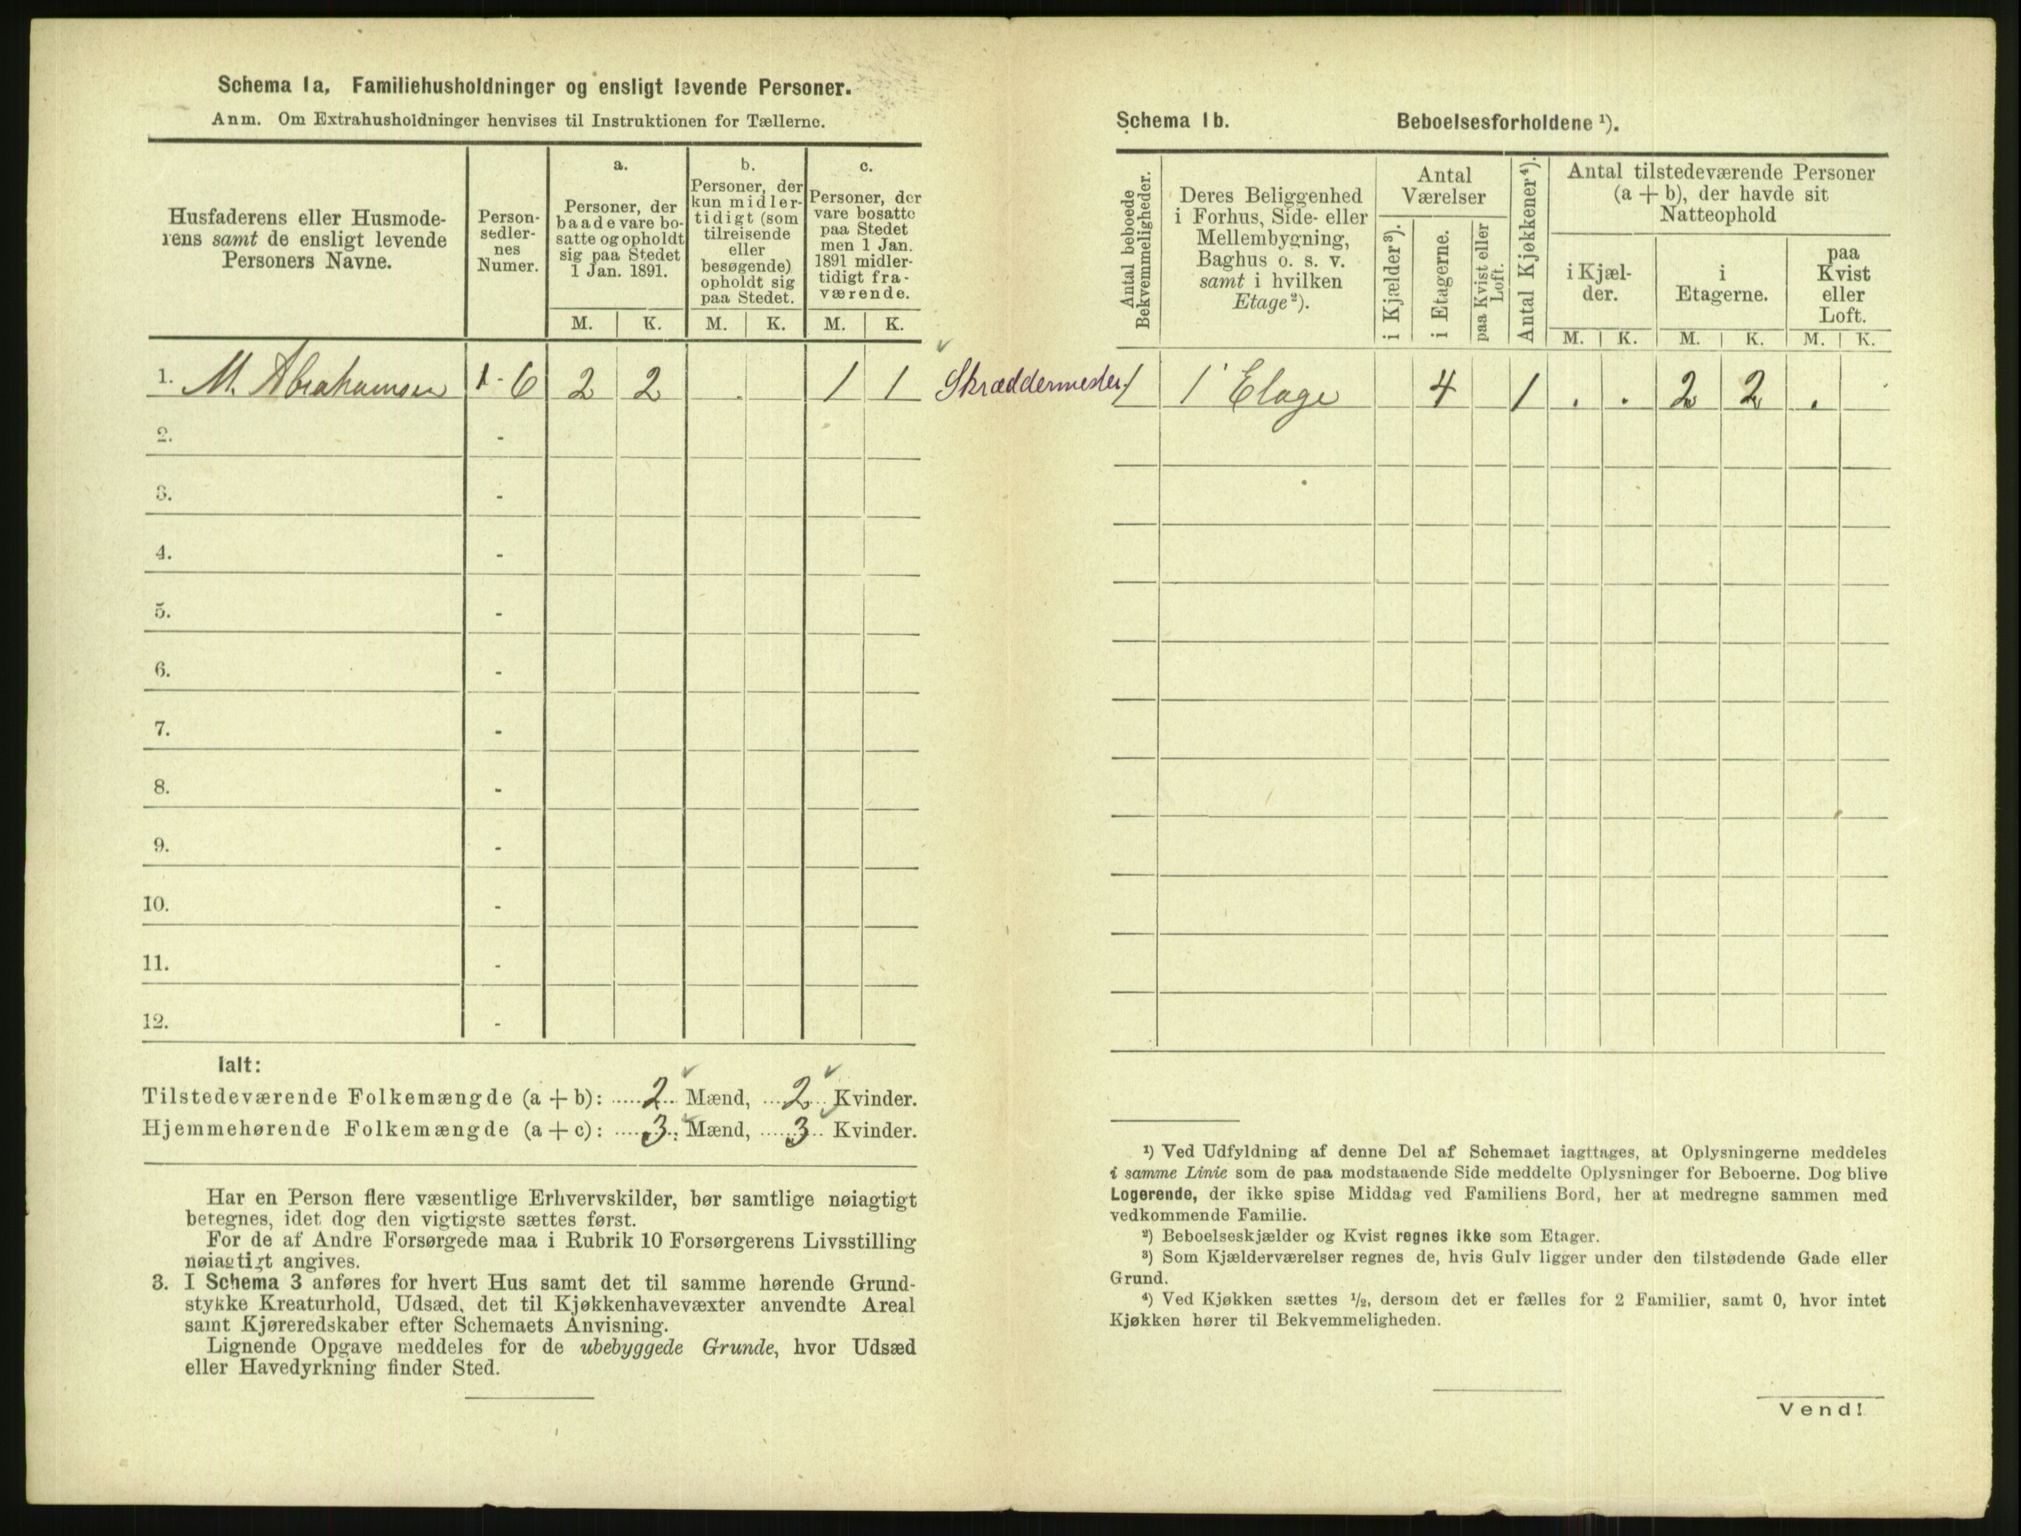 Schema 1a. Familiehusholdninger og ensligt levende Personer.
Anm. Om Extrahusholdninger henvises til Instruktionen for Tællerne.
Husfaderens eller Husmode-
rens samt de ensligt levende
Personers Navne.
Person-
sedler-
nes
Numer.
a.
Personer, der
baade vare bo-
satte og opholdt
sig paa Stedet
1 Jan. 1891.
b.
Personer, der
kun midler-
tidigt (som
tilreisende
eller
besøgende)
opholdt sig
paa Stedet.
c.
Personer, der
vare bosatte
paa Stedet
men 1 Jan.
1891 midler-
tidigt fra-
værende.
M. K. M. K. M. K.
1. M. Abrahamsen 1 - 6 2 2 . 1 1 Skræddermester
2. -
3. -
4. -
5. -
6. -
7. -
8. -
9. -
10. -
11. -
12. -
Ialt:
Tilstedeværende Folkemængde (a + b): 2 Mænd, 2 Kvinder.
Hjemmehørende Folkemængde (a + c): 3 Mænd, 3 Kvinder.
Har en Person flere væsentlige Erhvervskilder, bør samtlige nøiagtigt
betegnes, idet dog den vigtigste sættes først.
For de af Andre Forsørgede maa i Rubrik 10 Forsørgerens Livsstilling
nøiagtigt angives.
3. I Schema 3 anføres for hvert Hus samt det til samme hørende Grund-
stykke Kreaturhold, Udsæd, det til Kjøkkenhavevæxter anvendte Areal
samt Kjøreredskaber efter Schemaets Anvisning.
Lignende Opgave meddeles for de ubebyggede Grunde, hvor Udsæd
eller Havedyrkning finder Sted.
Schema 1b. Beboelsesforholdene ¹).
Antal beboede
Bekvemmeligheder.
Deres Beliggenhed
i Forhus, Side- eller
Mellembygning,
Baghus o. s. v.
samt i hvilken
Etage²).
Antal
Værelser
i Kjælder³).
i Etagerne.
paa Kvist eller
Loft.
Antal Kjøkkener⁴).
Antal tilstedeværende Personer
(a + b), der havde sit
Natteophold
i Kjæl-
der.
i
Etagerne.
paa
Kvist
eller
Loft.
M. K. M. K. M. K.
1 1' Etage 4 1 . . 2 2 .
¹) Ved Udfyldning af denne Del af Schemaet iagttages, at Oplysningerne meddeles
i samme Linie som de paa modstaaende Side meddelte Oplysninger for Beboerne. Dog blive
Logerende, der ikke spise Middag ved Familiens Bord, her at medregne sammen med
vedkommende Familie.
²) Beboelseskjælder og Kvist regnes ikke som Etager.
³) Som Kjælderværelser regnes de, hvis Gulv ligger under den tilstødende Gade eller
Grund.
⁴) Ved Kjøkken sættes ½, dersom det er fælles for 2 Familier, samt 0, hvor intet
Kjøkken hører til Bekvemmeligheden.
Vend!